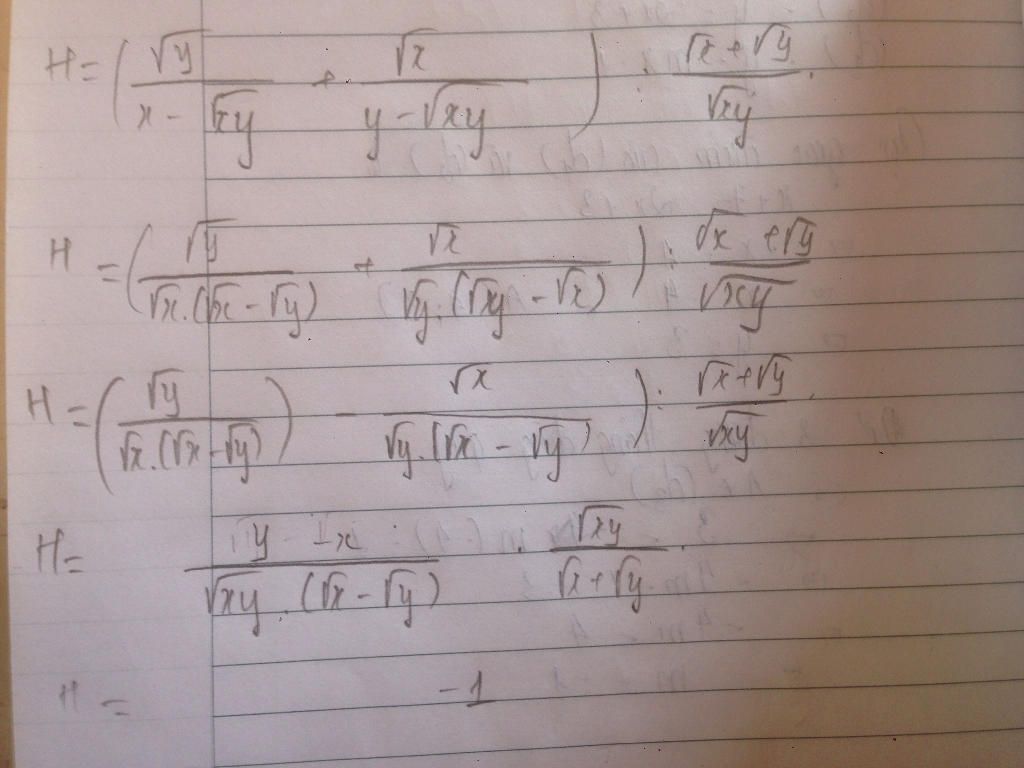 H = ( √y / (x - √xy) + √x / (y - √xy) ) : (√x + √y) / √xy .
H = ( √y / (√x . (√x - √y)) + √x / (√y . (√xy - √x)) ) : (√x + √y) / √xy
H = ( √y / (√x . (√x - √y)) ) - √x / (√y . (√x - √y)) ) : (√x + √y) / √xy .
H = (y - x) / (√xy . (√x - √y)) . √xy / (√x + √y) .
H = -1